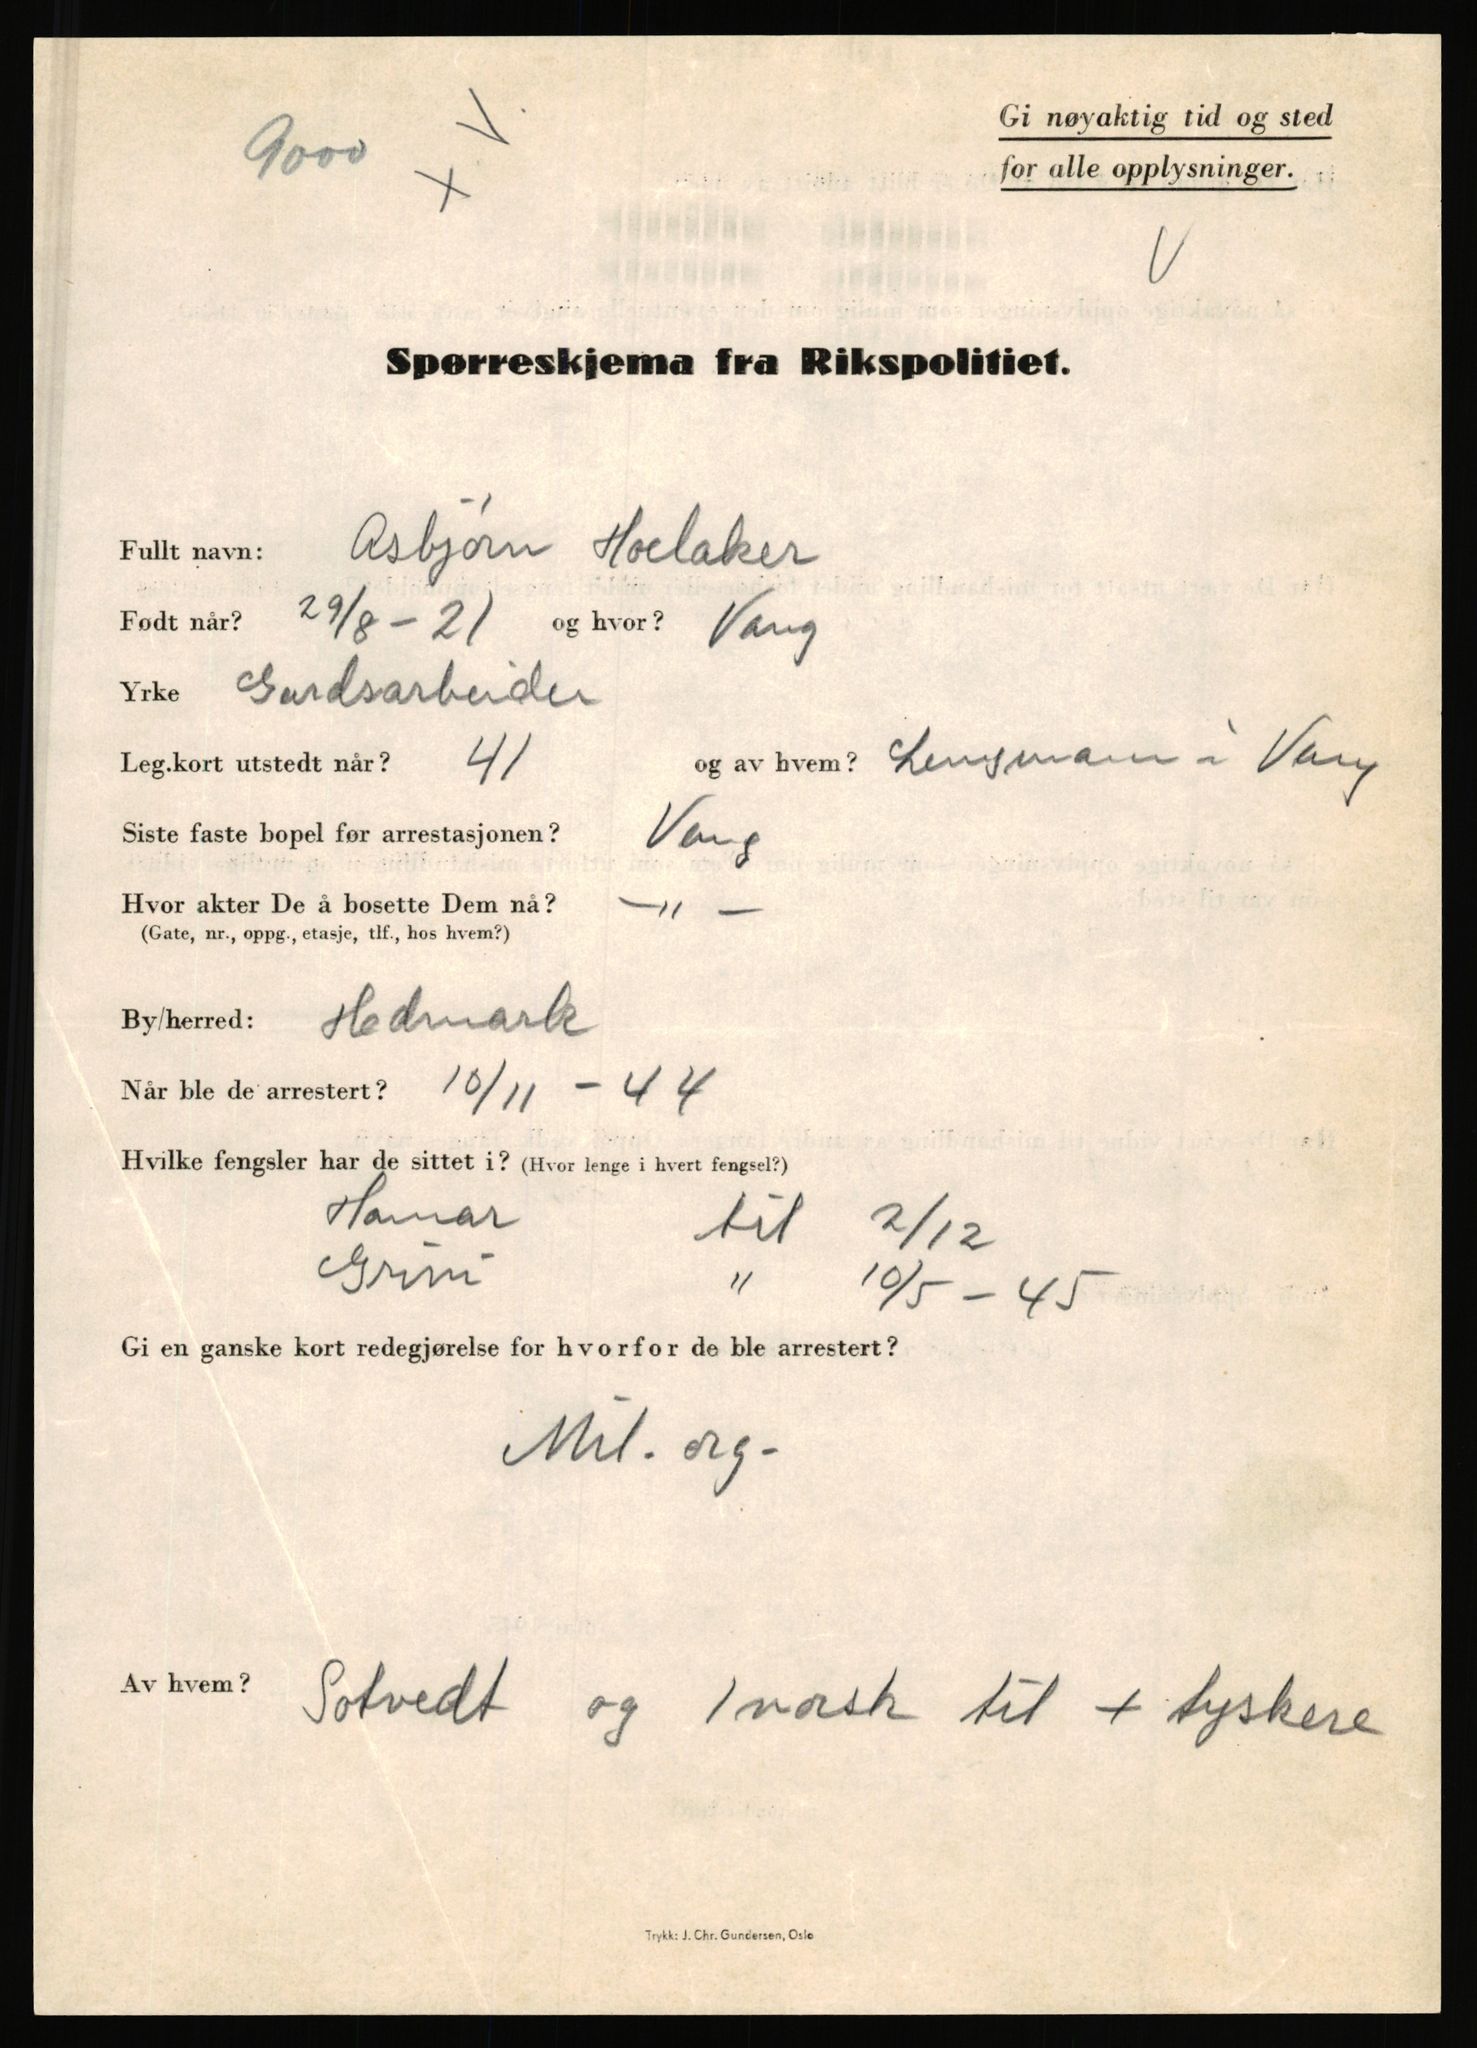 9000 x V.
Gi nøyaktig tid og sted
for alle opplysninger.
V
Spørreskjema fra Rikspolitiet.
Fullt navn: Asbjørn Hoelaker
Født når? 29/8 - 21 og hvor? Vang
Yrke Gardsarbeider
Leg.kort utstedt når? 41 og av hvem? Lensmann i Vang
Siste faste bopel før arrestasjonen? Vang
Hvor akter De å bosette Dem nå? — " —
(Gate, nr., oppg., etasje, tlf., hos hvem?)
By/herred: Hedmark
Når ble de arrestert? 10/11 - 44
Hvilke fengsler har de sittet i? (Hvor lenge i hvert fengsel?)
Hamar til 2/12
Grini " 10/5 - 45
Gi en ganske kort redegjørelse for hvorfor de ble arrestert?
Mil. org-
Av hvem? Sotvedt og 1 norsk til + tyskere
Trykk: J. Chr. Gundersen, Oslo